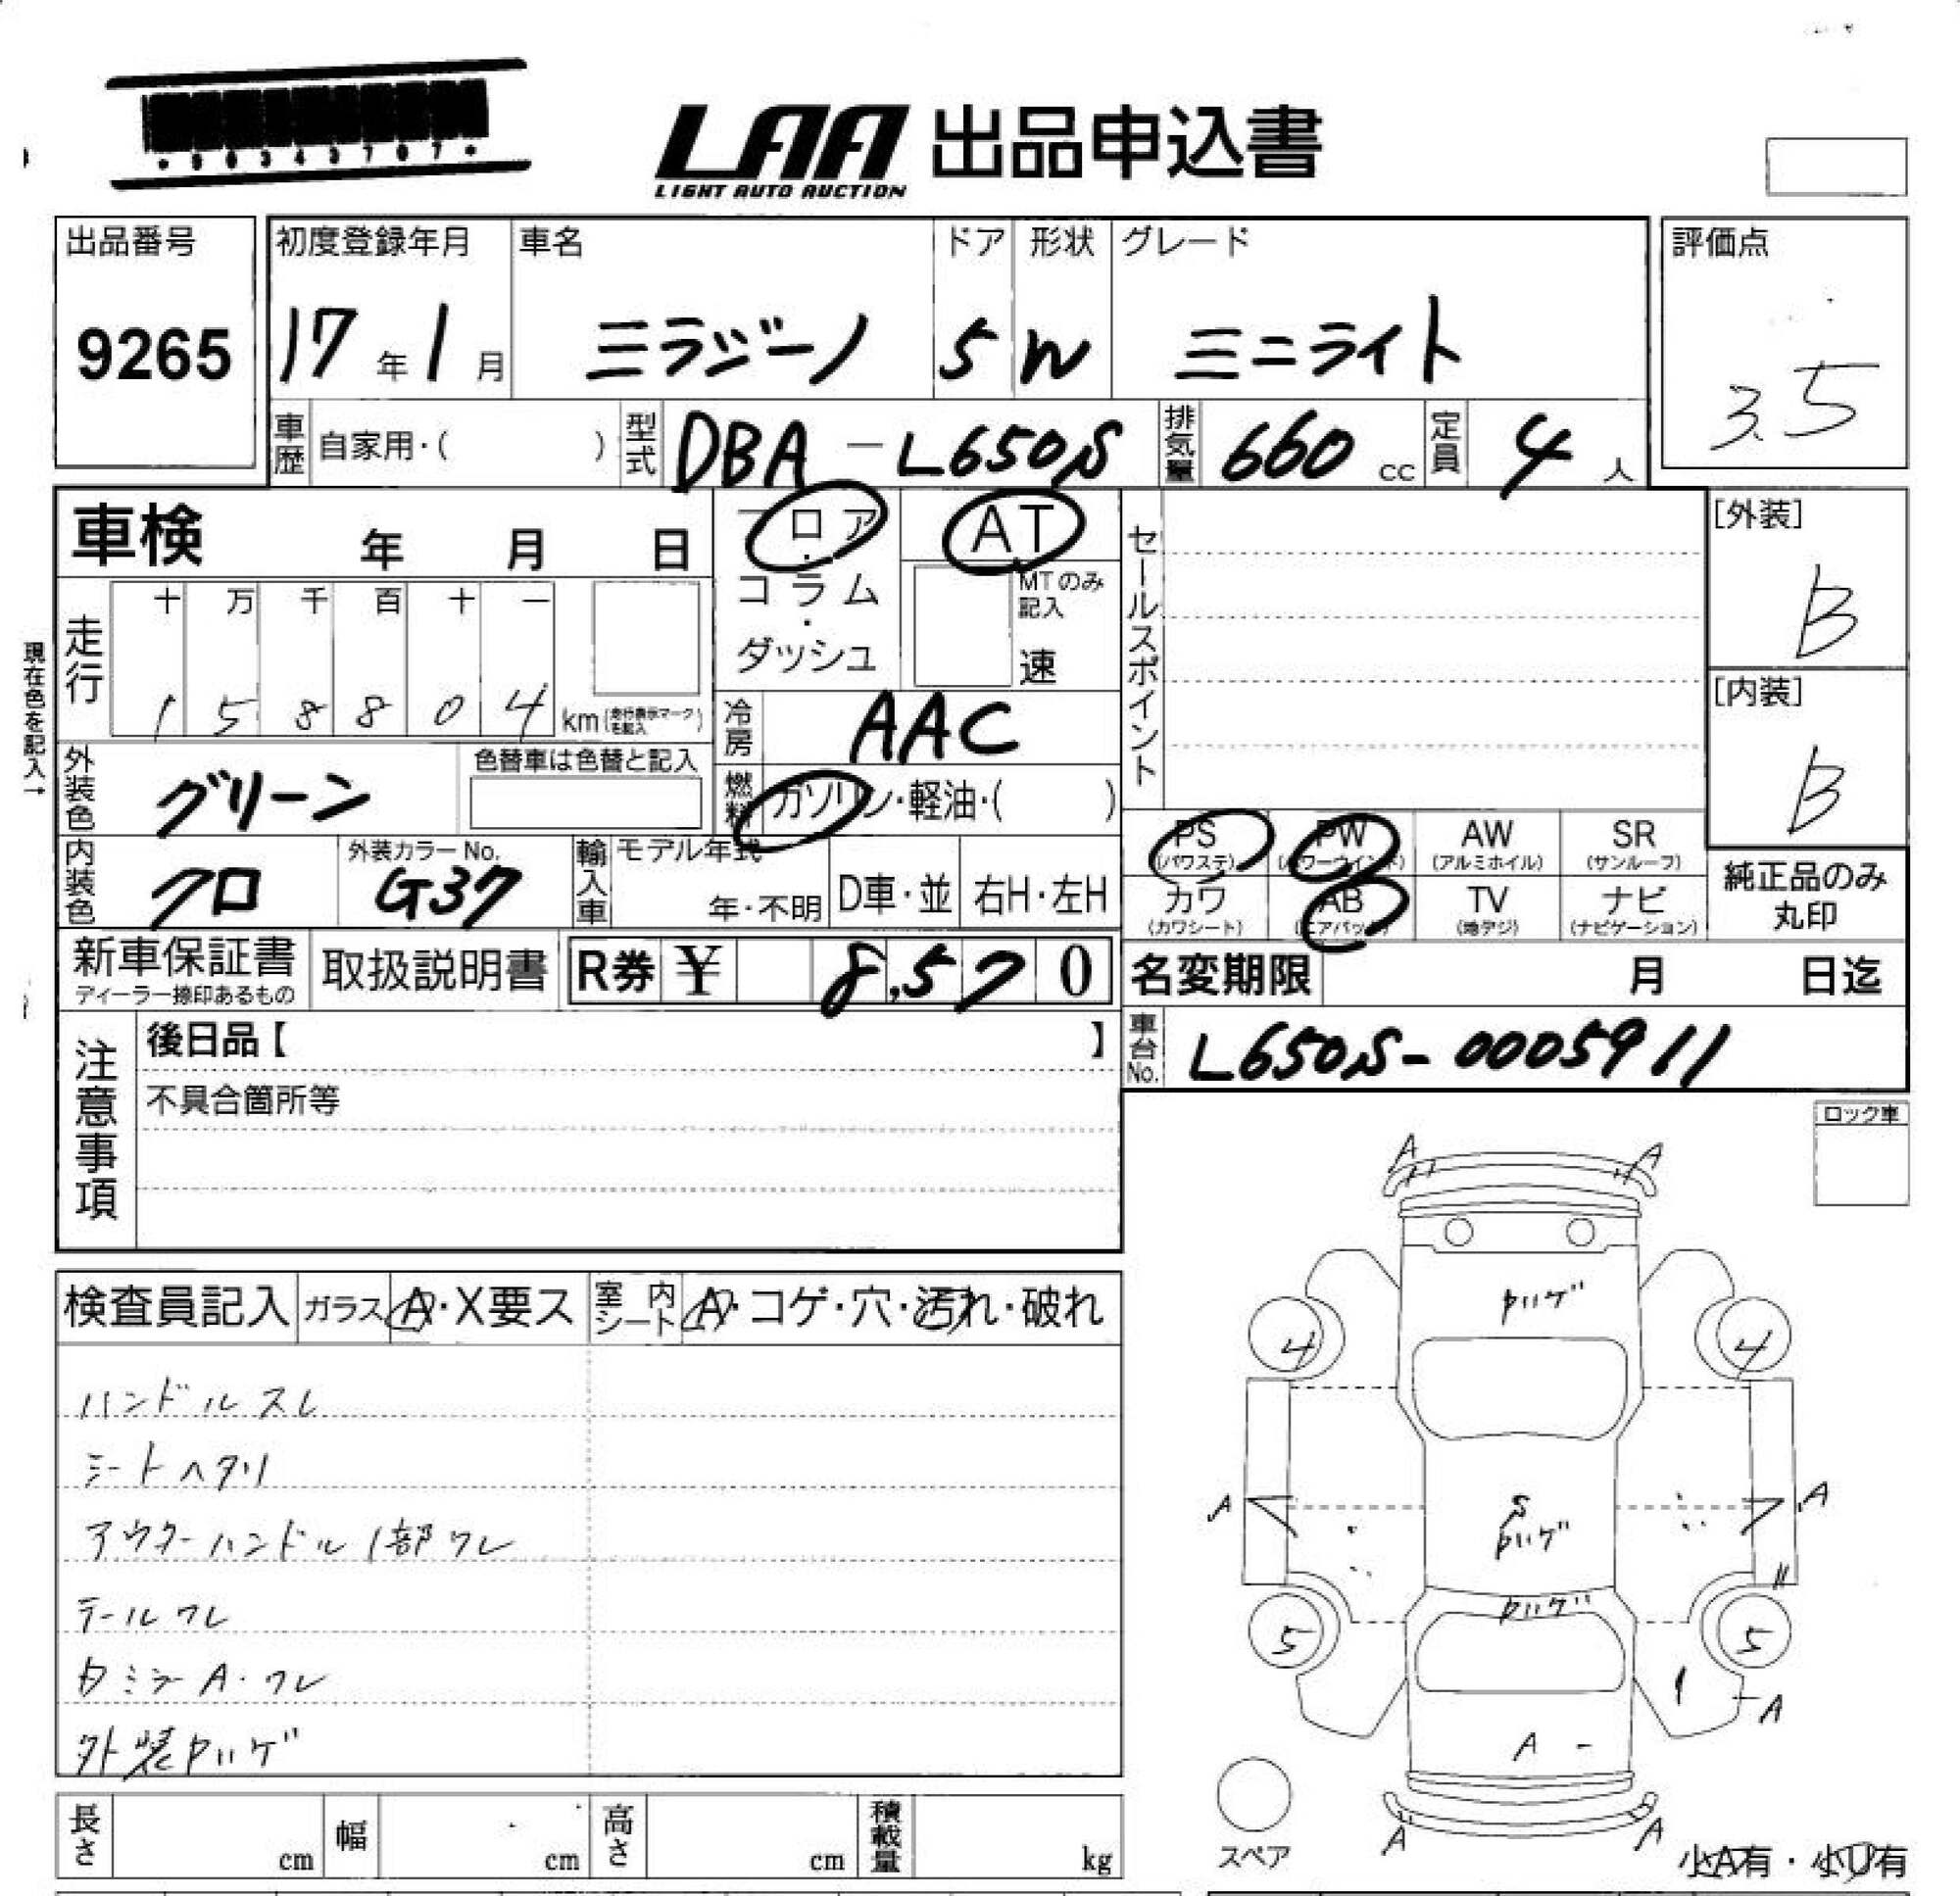 LAA 出品申込書
LIGHT AUTO AUCTION
出品番号 初度登録年月 車名 ドア 形状 グレード 評価点
9265 17年1月 ミラジーノ 5 W ミニライト 3.5
車歴 自家用・( ) 型式 DBA-L650S 排気量 660 cc 定員 4 人
車検 年 月 日 フロア AT セールスポイント [外装]
B
コラム MTのみ記入
ダッシュ 速
現在色を記入→
走行 十 万 千 百 十 一
1 5 8 8 0 4 km(走行表示マークを記入)
[内装]
B
冷房 AAC
外装色 グリーン 色替車は色替と記入 燃料 ガソリン・軽油・( )
PS (パワステ) PW (パワーウインド) AW (アルミホイル) SR (サンルーフ)
内装色 クロ 外装カラーNo. G37 輸入車 モデル年式 年・不明 D車・並 右H・左H
カワ (カワシート) AB (エアバッグ) TV (地デジ) ナビ (ナビゲーション)
純正品のみ
丸印
新車保証書 取扱説明書 R券 ¥ 8,570 名変期限 月 日迄
ディーラー捺印あるもの
注意事項 後日品【 】 車台No. L650S-0005911
不具合箇所等
ロック車
検査員記入 ガラス A・X要ス 室内シート A・コゲ・穴・汚れ・破れ
ハンドルスレ
シートヘタリ
アウターハンドル1部ワレ
テールワレ
外装
A A
4 4
A S A
5 5
A
A
A A
スペア
小A有・小U有
長さ cm 幅 cm 高さ cm 積載量 kg